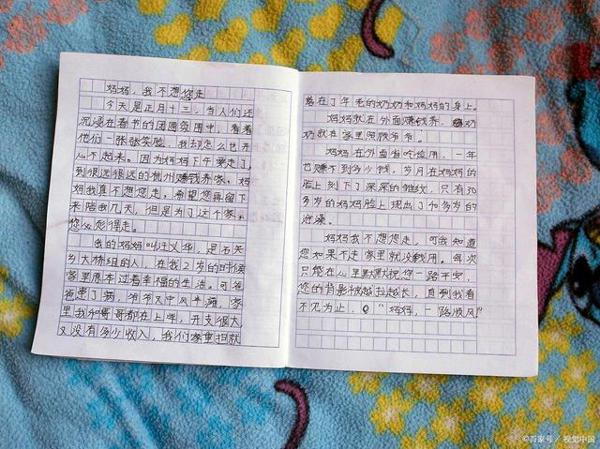 妈妈，我不想您走
今天是正月十三，当人们还
沉浸在春节的团圆氛围中，看着
他们一张张笑脸，我却怎么也开
心不起来。因为妈妈下午要走了，
到很远很远的杭州赚钱养家。妈
妈我真不想您走。希望您再留下
来陪我几天，但是为了这个家。
您必须得走。
我的妈妈叫汪义华，是石关
乡大桥组的人，在我2岁的时候
家里原本过着幸福的生活。可爸
爸患了病，爷爷又中风半瘫，家里
我和哥哥都在上学，开支很大，
又没有多少收入，我们家重担就
落在了年老的奶奶和妈妈的身上。
妈妈就在外面赚钱养，奶
奶就在家里照顾爷爷。
妈妈在外面省吃俭用，一年
也赚不到多少钱，岁月在妈妈的
脸上刻下了深深的皱纹，只有30
多岁的妈妈脸上现出了40多岁的
沧桑。
妈妈我不想您走，可我知道
您如果不走家里就没钱用。每次
只能在心里默默祝您一路平安，
您的背影被越拉越长，直到我看
不见为止，“妈妈，一路顺风”
©百家号/视觉中国